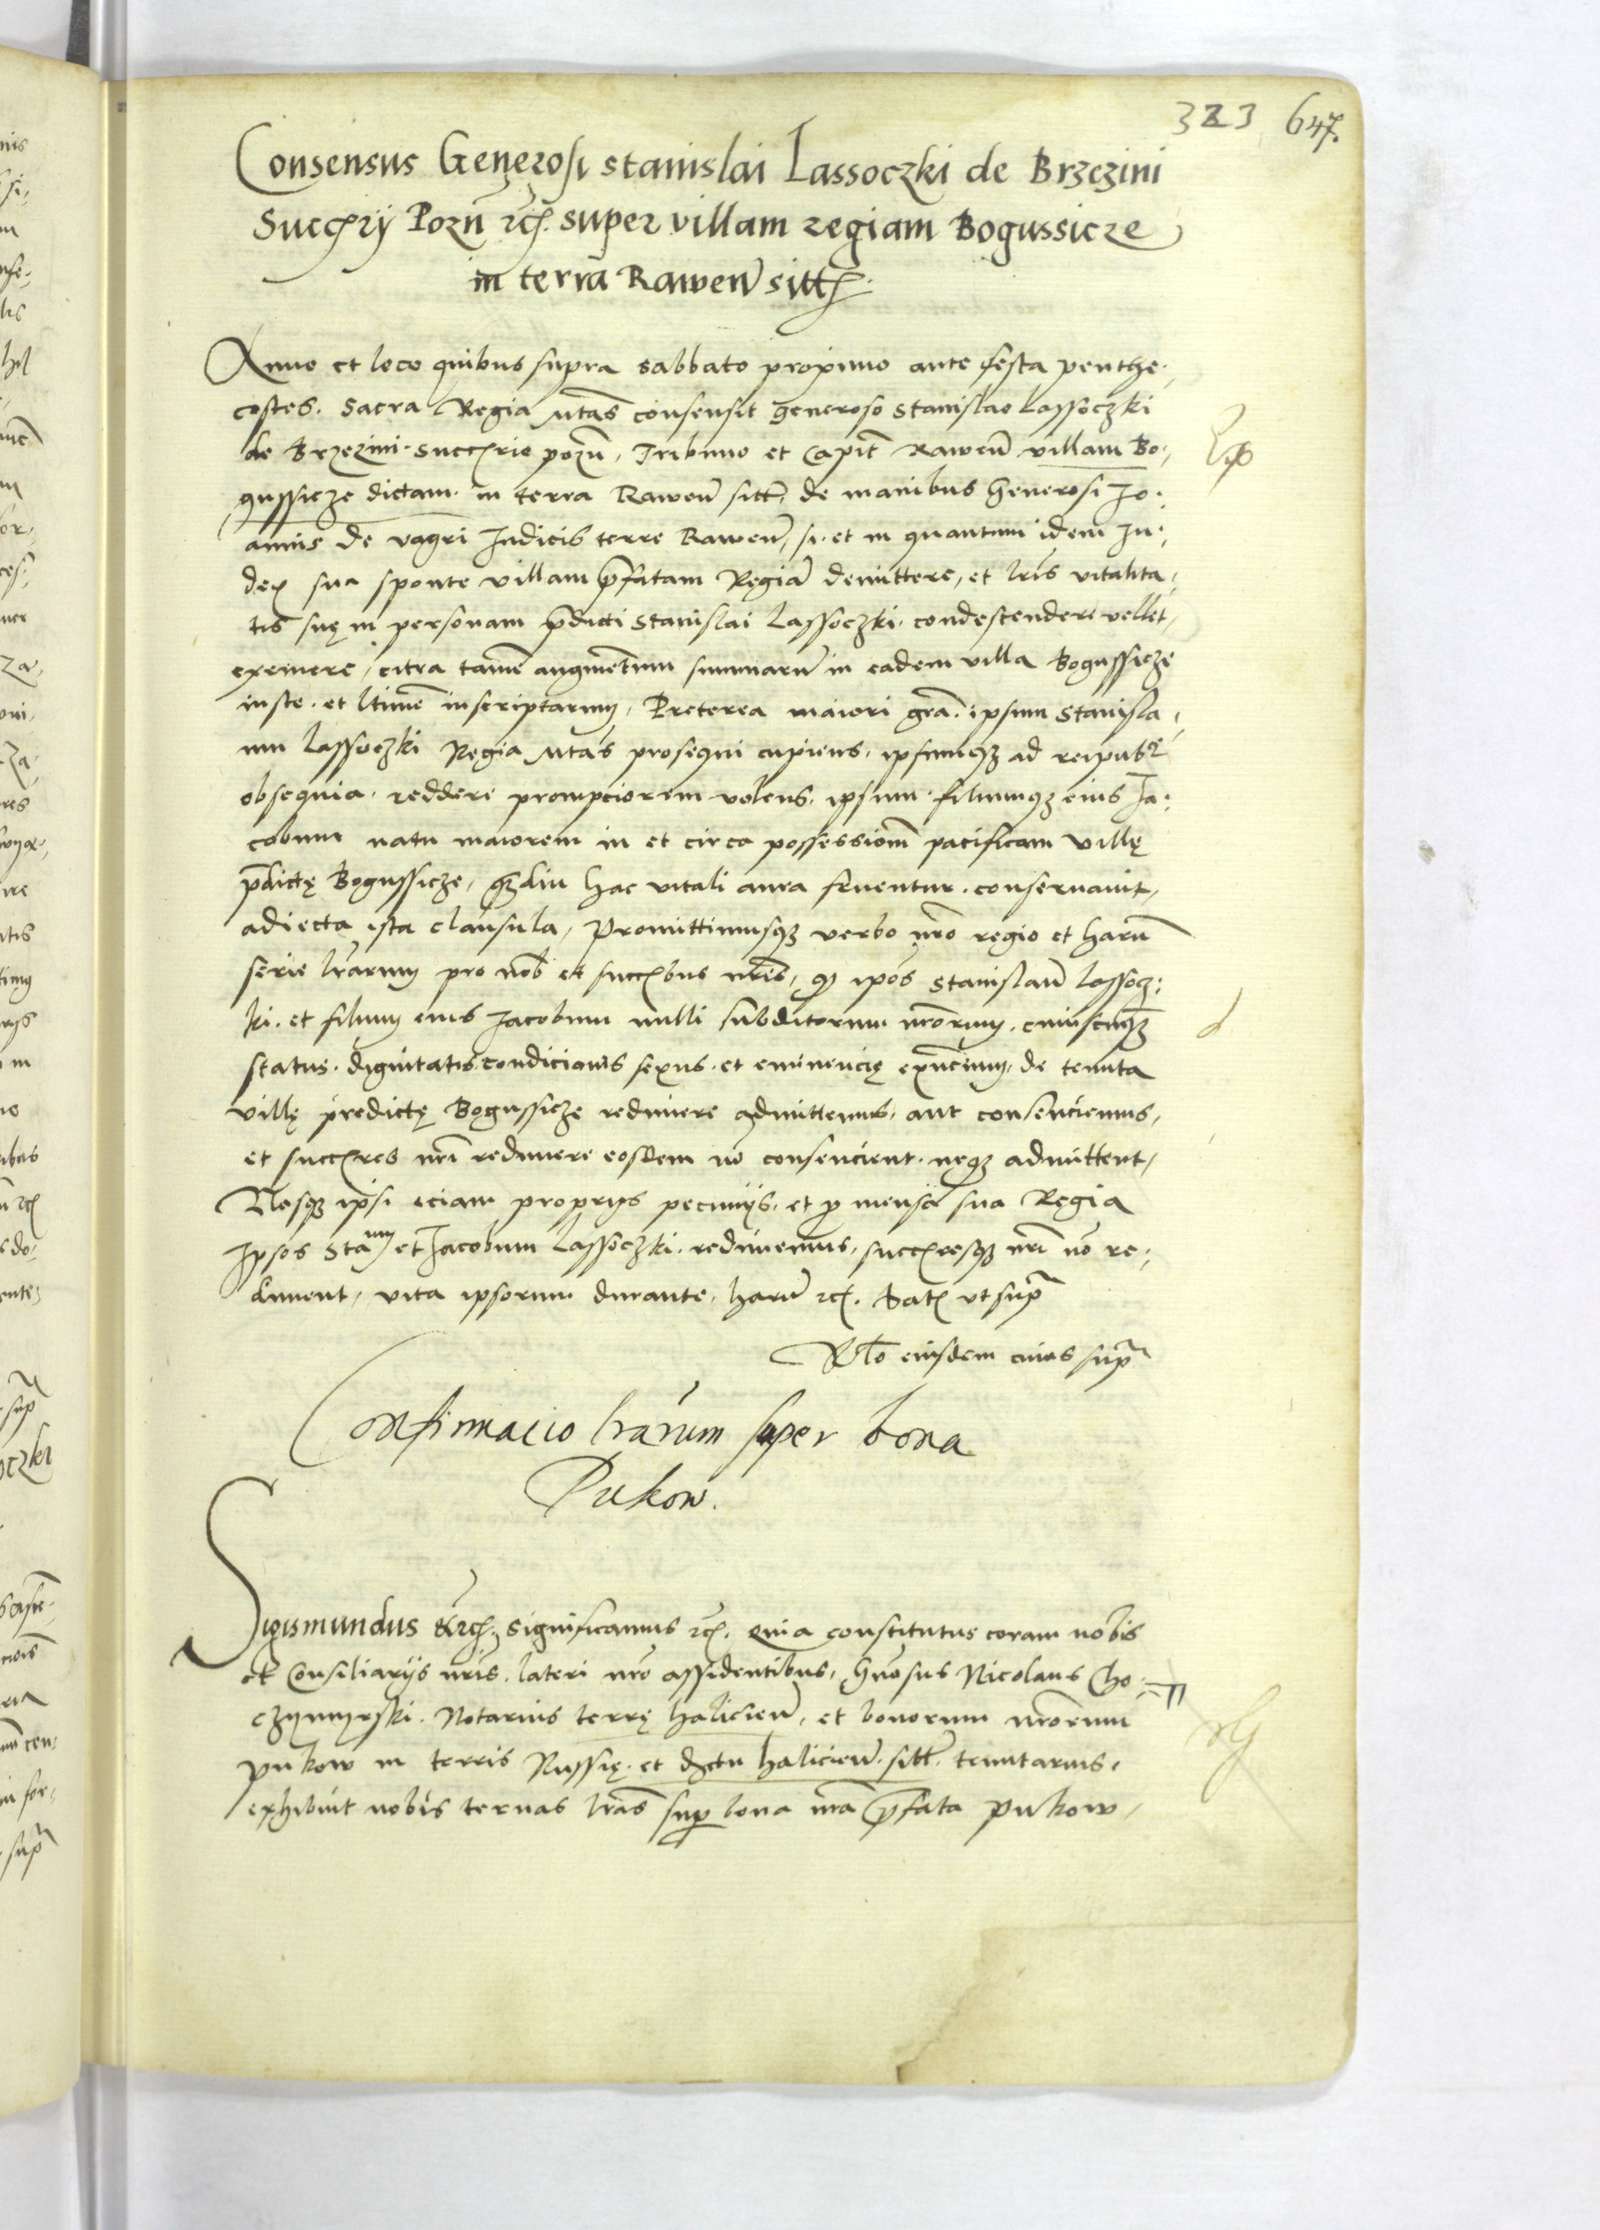 323 647.
Consensus Generosi Stanislai Lassoczki de Brzezini
Succrij Pozn rc. super villam regiam Bogussicze
in terra Rawen sitt.
Anno et loco quibus supra sabbato proximo ante festa penthe-
costes. Sacra Regia Mtas consensit generoso Stanislao Lassoczki
de Brzezini Succrio pozn, Tribuno et Capit Rawen villam Bo-
gussicze dictam in terra Rawen sitt, de manibus Generosi Jo-
annis de Vagri Judicis terre Rawen, si et in quantum idem Ju-
dex sua sponte villam prefatam Regia demittere, et lris vitalita-
tis sue in personam predicti Stanislai Lassoczki condescendere vellet,
eximere, citra tamen augmentum summaru in eadem villa Bogussicze
iuste et ltime inscriptarum, Preterea maiori gra ipsum Stanisla-
um Lassoczki Regia Mtas prosequi cupiens, ipsumqz ad reipub
obsequia reddere prompciorem volens, ipsum filiumqz eius Ja-
cobum natu maiorem in et circa possessionem pacificam villę
predictę Bogussicze, qzdiu hac vitali aura fruentur conservavit,
adiecta ista clausula, Promittimusqz verbo nro regio et haru
serie lrarum pro nob et succribus nris, qd ipos Stanislau Lassocz-
ki et filium eius Jacobum nulli subditorum nrorum, cuiuscunqz
status, dignitatis condicionis sexus et eminencię existencium, de tenuta
villę predictę Bogussicze redimere admittemus, aut consenciemus,
et succres nri redimere eosdem no consencient neqz admittent,
Nosqz ipsi eciam proprijs pecunijs, et p mensa sua Regia
Ipsos Staum et Jacobum Lassoczki redimemus, succresqz nri no re-
diment, vita ipsorum durante, haru rc. Dat ut supra
Rlo eiusdem cuius supra
Confirmacio lrarum super bona
Pukow.
Sigismundus &rc. Significamus rc. Quia constitutus coram nobis
et Consiliarijs nris lateri nro assidentibus, Gnosus Nicolaus Cho-
czymyrski Notarius terrę Halicien, et bonorum nrorum
Pukow in terris Russię et drctu Halicien sitt tenutarius,
exhibuit nobis ternas lras sup bona nra prefata Pukow,